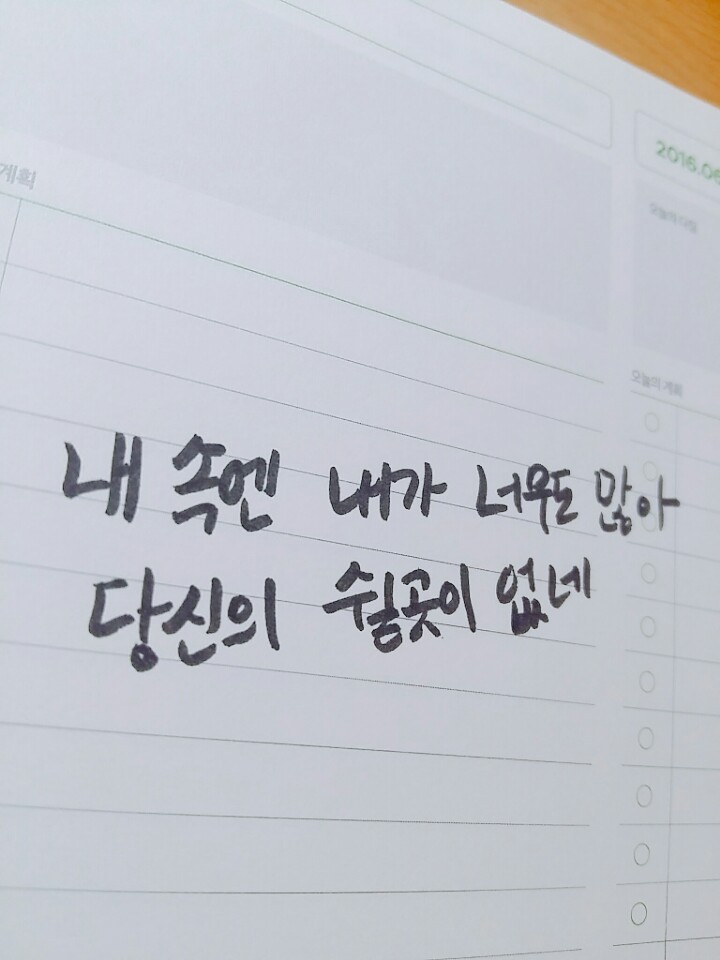 계획
2016.06
오늘의 다짐
오늘의 계획
내 속엔 내가 너무도 많아
당신의 쉴곳이 없네